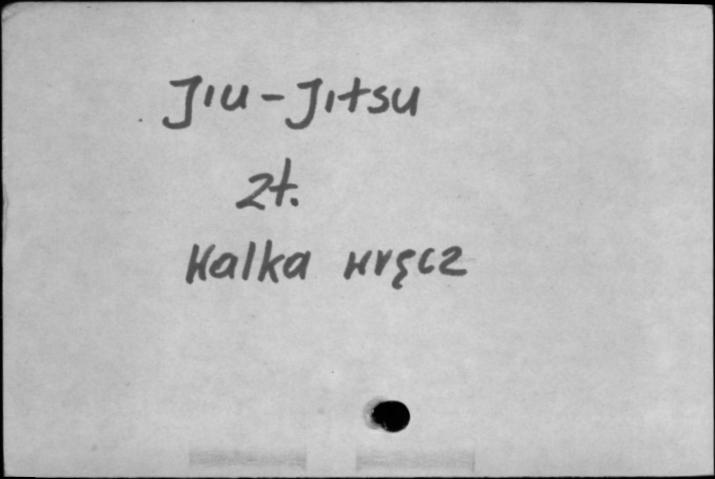 Jiu-Jitsu
zł.
Walka wręcz